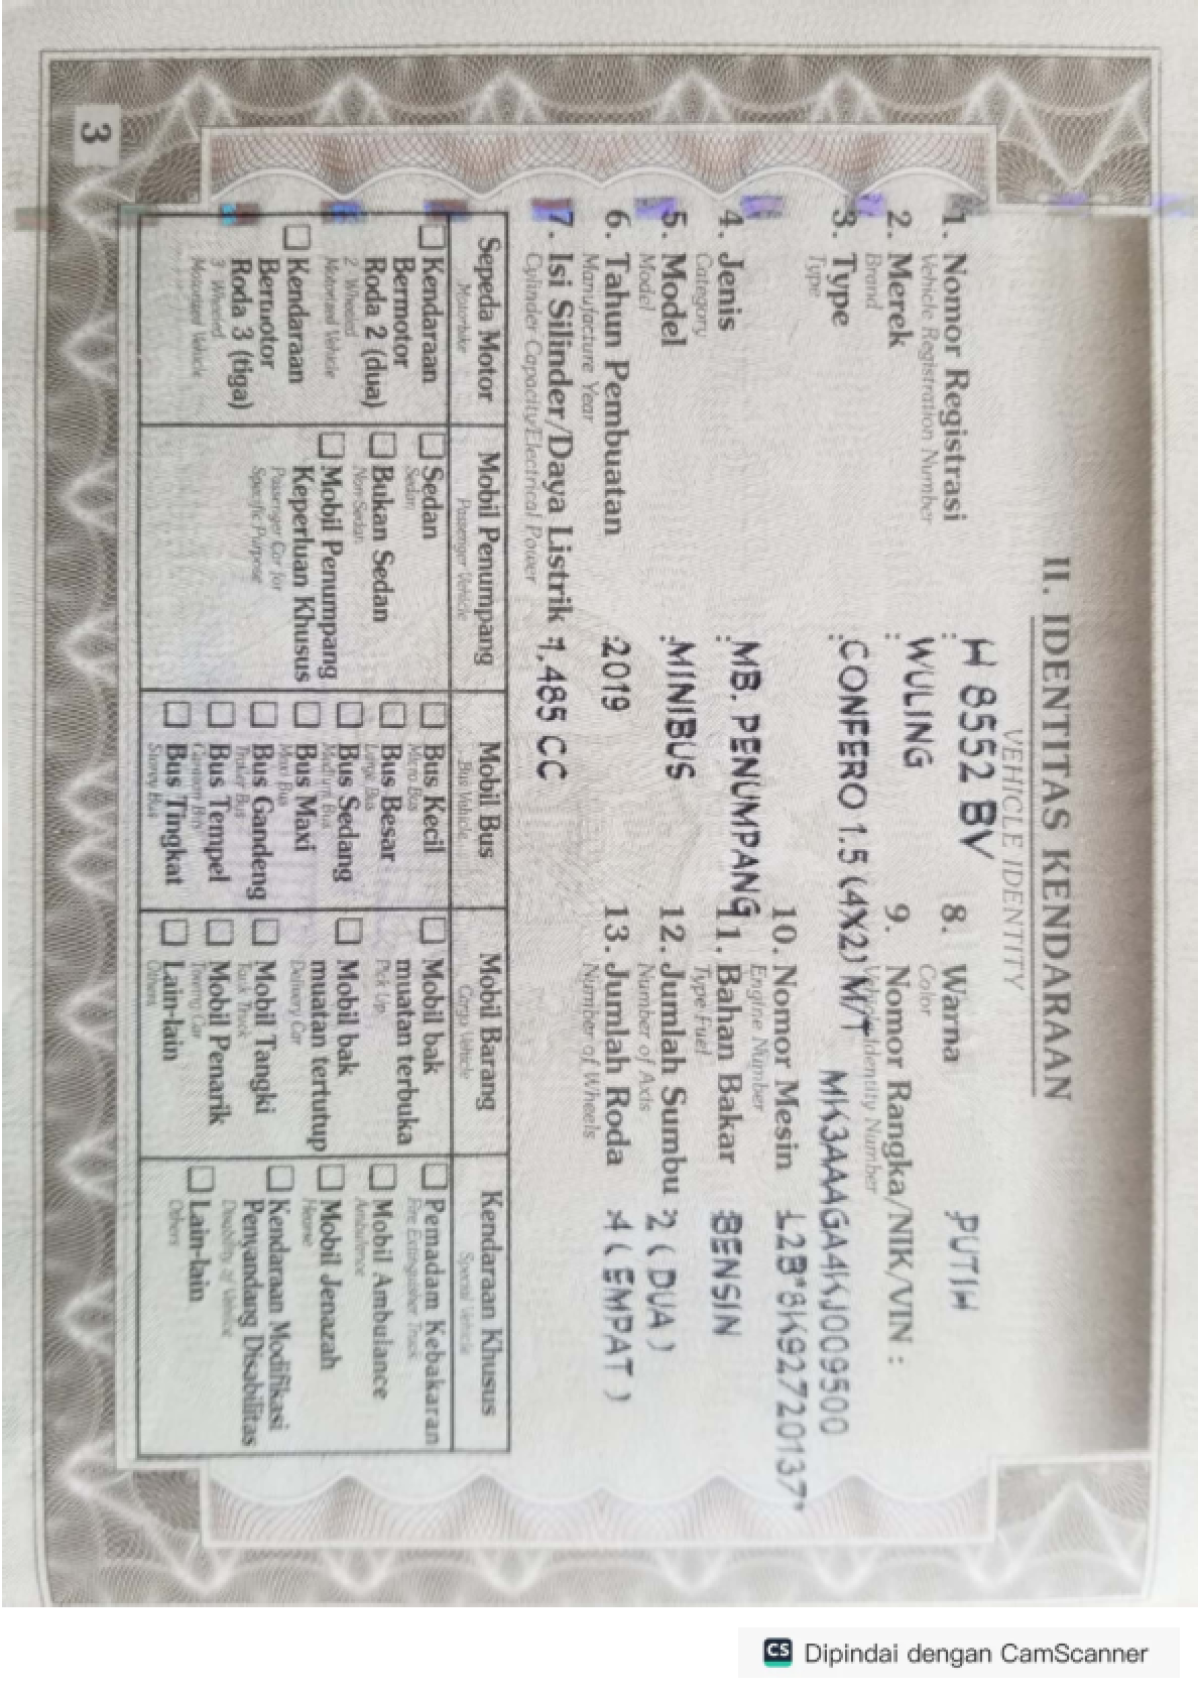 II. IDENTITAS KENDARAAN
VEHICLE IDENTITY
1. Nomor Registrasi : H 8552 BV
Vehicle Registration Number
2. Merek : WULING
Brand
3. Type : CONFERO 1.5 (4X2) M/T
Type
4. Jenis : MB. PENUMPANG
Category
5. Model : MINIBUS
Model
6. Tahun Pembuatan : 2019
Manufacture Year
7. Isi Silinder/Daya Listrik : 1,485 CC
Cylinder Capacity/Electrical Power
8. Warna : PUTIH
Color
9. Nomor Rangka/NIK/VIN :
Vehicle Identity Number
MK3AAAGA4KJ009500
10. Nomor Mesin : L2B*8K92720137*
Engine Number
11. Bahan Bakar : BENSIN
Type Fuel
12. Jumlah Sumbu : 2 ( DUA )
Number of Axis
13. Jumlah Roda : 4 ( EMPAT )
Number of Wheels
Sepeda Motor
Motorbike
Kendaraan
Bermotor
Roda 2 (dua)
2 Wheeled
Motorized Vehicle
Kendaraan
Bermotor
Roda 3 (tiga)
3 Wheeled
Motorized Vehicle
Mobil Penumpang
Passenger Vehicle
Sedan
Sedan
Bukan Sedan
Non Sedan
Mobil Penumpang
Keperluan Khusus
Passenger Car for
Specific Purpose
Mobil Bus
Bus Vehicle
Bus Kecil
Micro Bus
Bus Besar
Large Bus
Bus Sedang
Medium Bus
Bus Maxi
Maxi Bus
Bus Gandeng
Bus
Bus Tempel
Bus
Bus Tingkat
Storey Bus
Mobil Barang
Cargo Vehicle
Mobil bak
muatan terbuka
Pick Up
Mobil bak
muatan tertutup
Delivery Car
Mobil Tangki
Tank Truck
Mobil Penarik
Towing Car
Lain-lain
Others
Kendaraan Khusus
Special Vehicle
Pemadam Kebakaran
Fire Extinguisher Truck
Mobil Ambulance
Ambulance
Mobil Jenazah
Hearse
Kendaraan Modifikasi
Penyandang Disabilitas
Disability of Vehicle
Lain-lain
Others
3
CS Dipindai dengan CamScanner